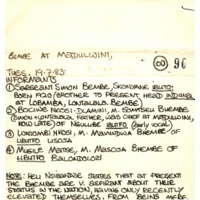 BEMBE AT MPDULWINI,
96
TUES, 19.7.83
INFORMANTS
① SERGEANT SIMON BEMBE, SKONYANE LIBUTO.
BORN 1920 (BROTHER TO PRESENT HEAD
AT LOBAMBA, LONTALALA BEMBE)
② BOCINE NKOSI-DLAMINI, M. SOMTSEU BHEMBE
(SIMON + LONTALALA, FATHER, WAS CHIEF AT
OLD LADY) OF NGULUBE LIBUTO (EARLY VOCAL)
③ LONJOMBI NKOSI, M. MAVUNDWA BHEMBE OF
LIBUTO LISOJA
④ MUGILE MATSE, M. MASCOA BHEMBE OF
LIBUTO BALONDOLOZI
NOTE: HEU NSIBANDZE STATES THAT AT PRESENT
THE BEMBE ARE V. ABOUT THEIR
STATUS IN THE NATION, HAVING ONLY RECENTLY
ELEVATED THEMSELVES, FROM 'BEING